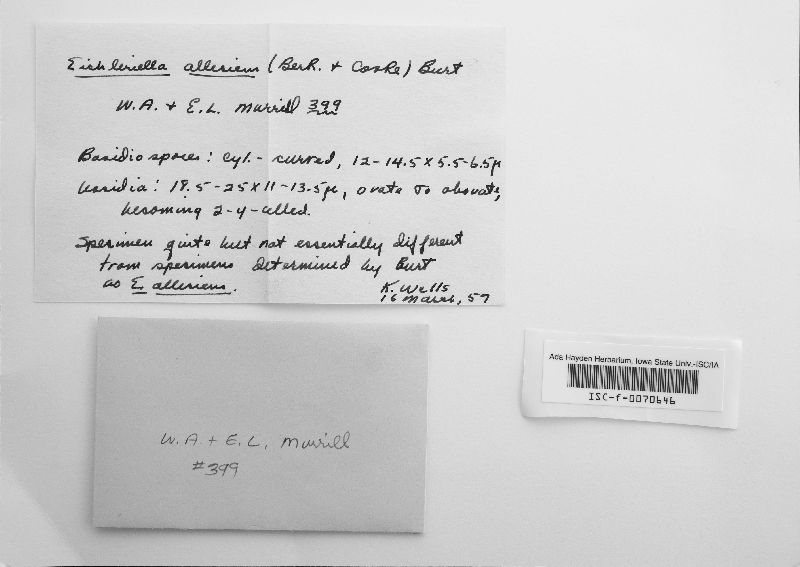 Eichleriella alliciens (Berk. & Cooke) Burt
W.A. + E.L. Murrill 399
Basidiospores: cyl.-curved, 12-14.5 x 5.5-6.5µ
basidia: 18.5-25 x 11-13.5µ, ovate to obovate,
becoming 2-4-celled.
Specimen quite but not essentially different
from specimens determined by Burt
as E. alliciens.
K. Wells
16 March, 57
W.A. + E.L. Murrill
#399
Ada Hayden Herbarium, Iowa State Univ.-ISC/IA
ISC-f-0070646